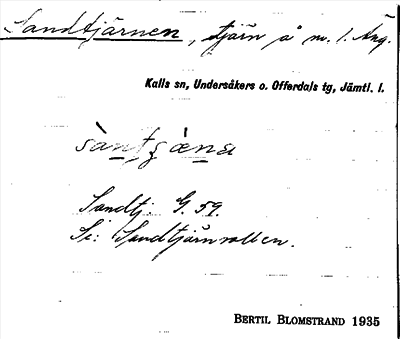 Sandtjärnen, tjärn å m. l. Äng.
Kalls sn, Undersåkers o. Offerdals tg, Jämtl. l.
Sandtj. G. 59.
Se: Sandtjärnvallen.
BERTIL BLOMSTRAND 1935